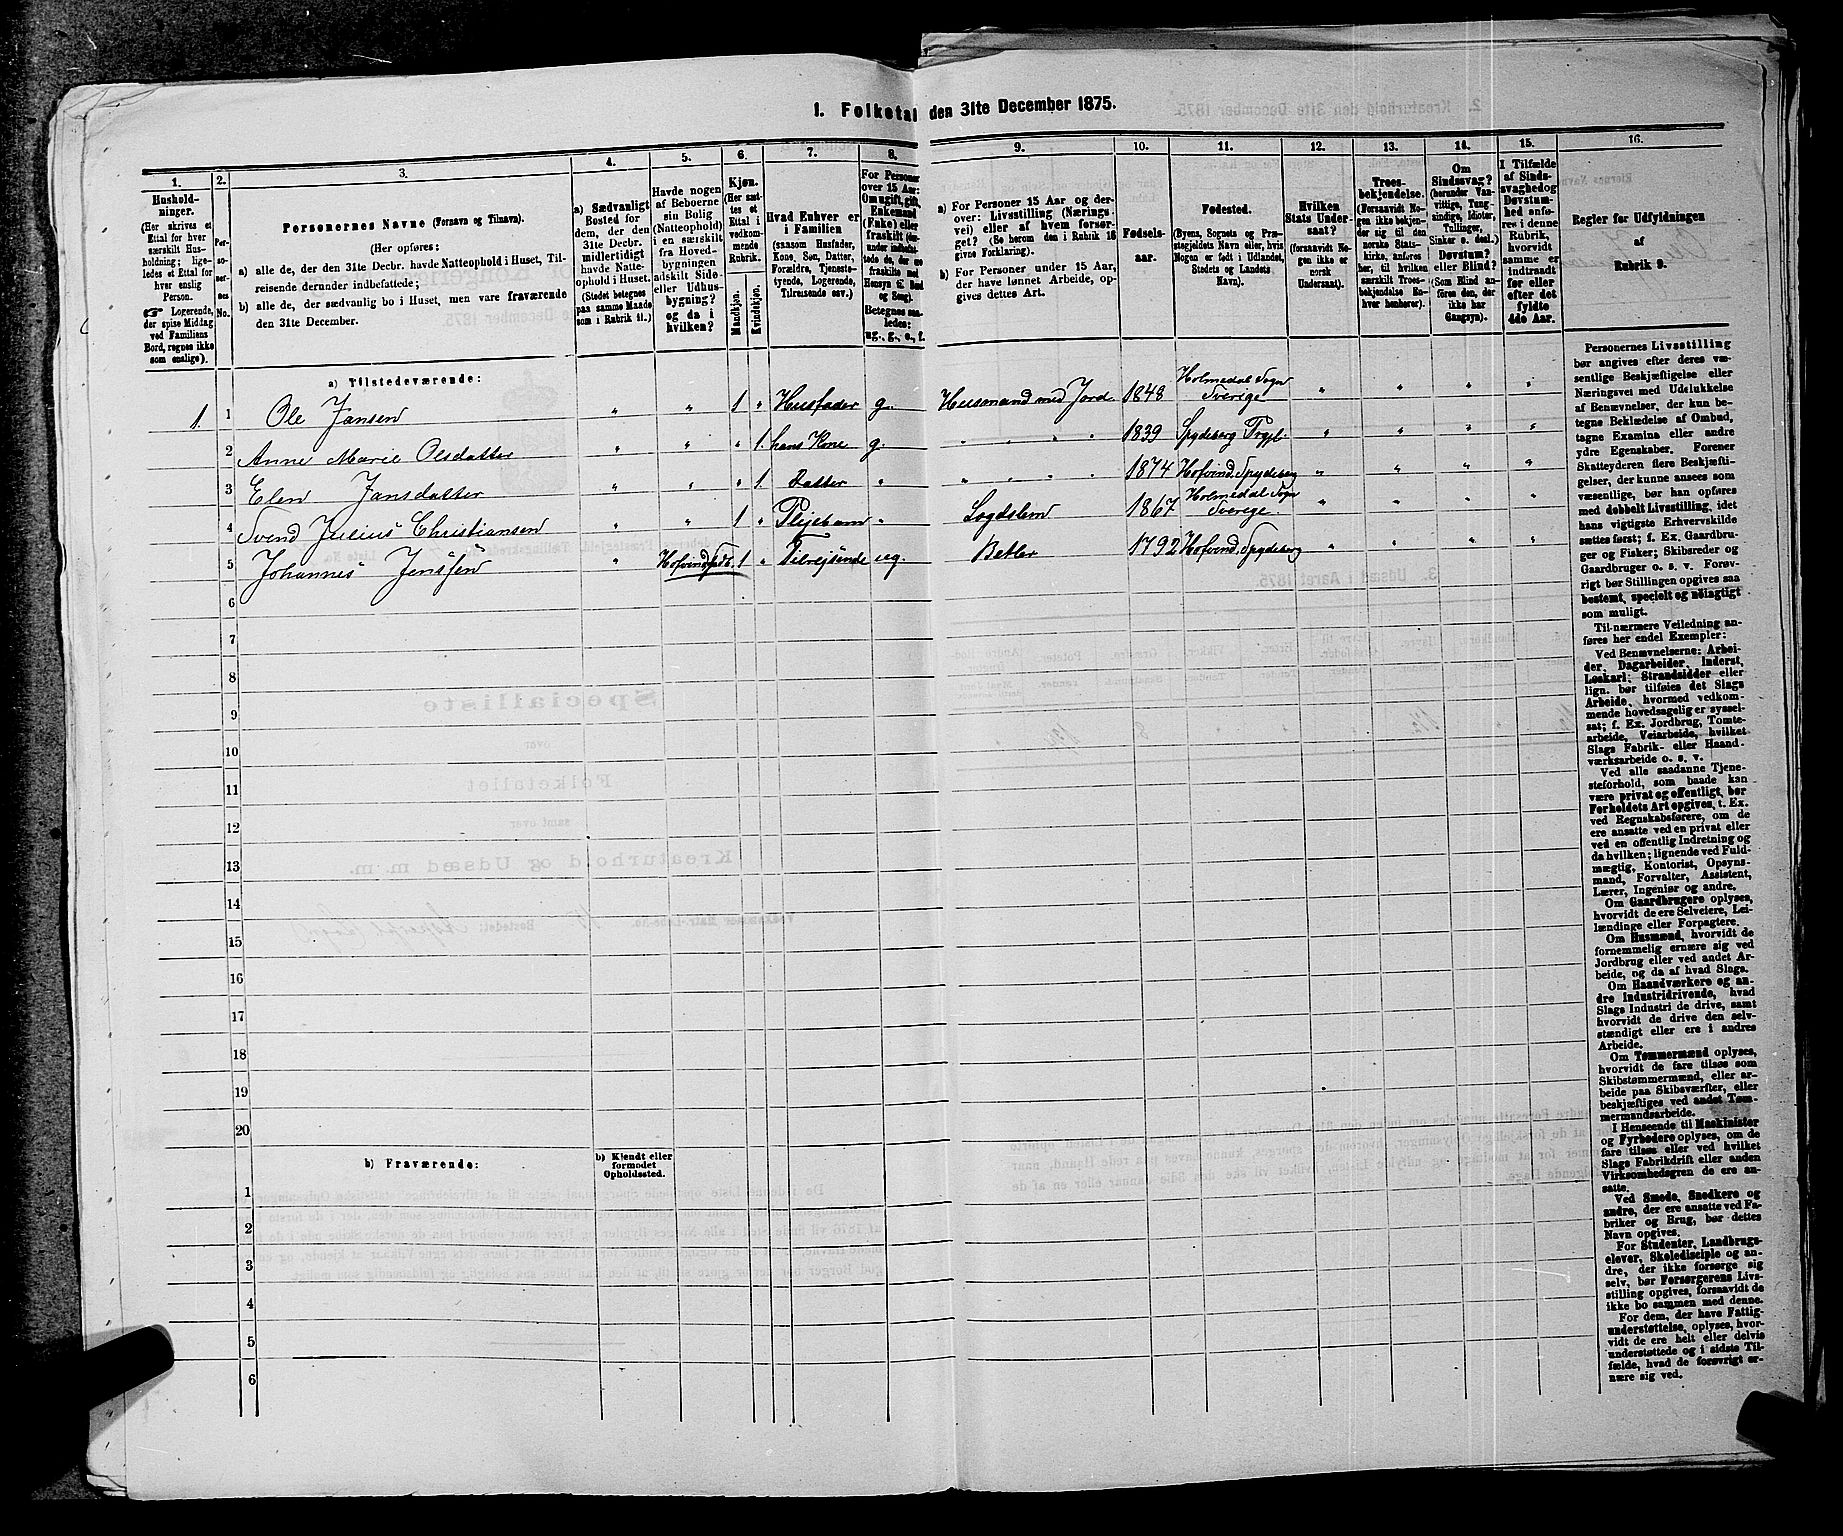 1. Folketal den 31te December 1875.
1. 2. 3. 4. 5. 6. 7. 8. 9. 10. 11. 12. 13. 14. 15. 16.
Hushold-
ninger.
(Her skrives et
Ettal for hver
særskilt Hus-
holdning; lige-
ledes et Ettal for
hver enslig
Person.
☞ Logerende,
der spise Middag
ved Familiens
Bord, regnes ikke
som enslige).
Per-
so-
ner-
nes
No.
Personernes Navne (Fornavn og Tilnavn).
(Her opføres:
a) alle de, der den 31te Decbr. havde Natteophold i Huset, Til-
reisende derunder indbefattede;
b) alle de, der sædvanlig bo i Huset, men vare fraværende
den 31te December.
a) Sædvanligt
Bosted for
dem, der den
31te Decbr.
midlertidigt
havde Natte-
ophold i Huset.
(Stedet betegnes
paa samme Maade
som i Rubrik 11.)
Havde nogen
af Beboerne
sin Bolig
(Natteophold)
i en særskilt
fra Hoved-
bygningen
adskilt Side-
eller Udhus-
bygning?
og da i
hvilken?
Kjøn.
(Her sæt-
tes et
Ettal i
vedkom-
mende
Rubrik.
Mandkjøn.
Kvindekjøn.
Hvad Enhver er
i Familien
(saasom Husfader,
Kone, Søn, Datter,
Forældre, Tjeneste-
tyende, Logerende,
Tilreisende osv.)
For Personer
over 15 Aar:
Om ugift, gift,
Enkemand
(Enke) eller
fraskilt (der-
under indbefat-
tede, de ere
fraskilte med
Hensyn til Bord
og Seng).
Betegnes saa-
ledes:
ug., g., e., f.
a) For Personer 15 Aar og der-
over: Livsstilling (Nærings-
vei) eller af hvem forsør-
get? (Se herom den i Rubrik 16
givne Forklaring).
b) For Personer under 15 Aar,
der have lønnet Arbeide, op-
gives dettes Art.
Fødsels-
aar.
Fødested.
(Byens, Sognets og Præ-
stegjeldets Navn eller, hvis
Nogen er født i Udlandet,
Stedets og Landets
Navn).
Hvilken
Stats Under-
saat?
(forsaavidt No-
gen ikke er
norsk
Undersaat).
Troes-
bekjendelse.
(Forsaavidt No-
gen ikke bekjen-
der sig til den
norske Stats-
kirke, anføres
her, til hvilken
særskilt Troes-
bekjendelse En-
hver henhører).
Om
Sindssvag?
(herunder Van-
vittige, Tung-
sindige, Idioter,
Tullinger,
Sinker o. desl.)
Døvstum?
eller Blind?
(Som Blind an-
føres den, der
ikke har
Gangsyn).
I Tilfælde
af Sinds-
svaghed og
Døvstum-
hed anfø-
res i denne
Rubrik,
hvorvidt
samme er
indtraadt
før eller
efter det
fyldte
4de Aar.
Regler for Udfyldningen
af
Rubrik 9.
a) Tilstedeværende:
1 1 Ole Jansen " " 1 " Husfader g. Husmand med Jord 1848 Holmedal Sogn Sverige " " " "
2 Anne Marie Olsdatter " " " 1. hans Kone g. " " " " 1839 Spydeberg Prgjl. " " " "
3 Elen Jansdatter " " " 1. Datter " " " " " 1874 Hofvind, Spydeberg " " " "
4 Svend Julius Christiansen " " 1 " Plejebarn " Logdslem 1867 Holmedal Sogn Sverige. " " " "
5 Johannes Jenssen " 1 " Tilrejsende ug. Betler 1792 Hofvind, Spydeberg " " " "
6
7
8
9
10
11
12
13
14
15
16
17
18
19
20
b) Fraværende:
b) Kjendt eller
formodet
Opholdssted.
1
2
3
4
5
6
Personernes Livsstilling
bør angives efter deres væ-
sentlige Beskjæftigelse eller
Næringsvei med Udelukkelse
af Benævnelser, der kun be-
tegne Beklædelse af Ombud,
tagne Examina eller andre
ydre Egenskaber. Forener
Skatteyderen flere Beskjæfti-
gelser, der kunne ansees som
væsentlige, bør han opføres
med dobbelt Livsstilling, idet
hans vigtigste Erhvervskilde
sættes først; f. Ex. Gaardbru-
ger og Fisker; Skibsreder og
Gaardbruger o. s. v. Forøv-
rigt bør Stillingen opgives saa
bestemt, specielt og nøiagtigt
som muligt.
Til nærmere Veiledning an-
føres her endel Exempler:
Ved Benævnelserne: Arbei-
der, Dagarbeider, Inderst,
Løskarl, Strandsidder eller
lign. bør tilføies det Slags
Arbeide, hvormed vedkom-
mende hovedsagelig er syssel-
sat; f. Ex. Jordbrug, Tomte-
arbeide, Veiarbeide, hvilket
Slags Fabrik- eller Haand-
værksarbeide o. s. v.
Ved alle saadanne Tjene-
steforhold, som baade kan
være privat og offentligt, bør
Forholdets Art opgives, t. Ex.
ved Regnskabsførere, om de
ere ansatte ved en privat eller
ved en offentlig Indretning og
da hvilken; lignende ved Fuld-
mægtig, Kontorist, Opsyns-
mand, Forvalter, Assistent,
Lærer, Ingeniør og andre.
Om Gaardbrugere oplyses,
hvorvidt de ere Selveiere, Lei-
lændinge eller Forpagtere.
Om Husmænd, hvorvidt de
fornemmelig ernære sig ved
Jordbrug eller ved andet Ar-
beide, og da af hvad Slags.
Om Haandværkere og an-
dre Industridrivende, hvad
Slags Industri de drive, samt
hvorvidt de drive den selv-
stændigt eller ere i andres
Arbeide.
Om Tømmermænd oplyses,
hvorvidt de fare tilsøs som
Skibstømmermænd, eller ar-
beide paa Skibsværfter, eller
beskjæftiges ved andet Tøm-
mermandsarbeide.
I Henseende til Maskinister
og Fyrbødere oplyses, om de
fare tilsøs eller ved hvilket
Slags Fabrikdrift eller anden
Virksomhedsgren de ere an-
satte.
Ved Smede, Snedkere og
andre, der ere ansatte ved Fa-
briker og Brug, bør dettes
Navn opgives.
For Studenter, Landbrugs-
elever, Skoledisciple og an-
dre, der ikke forsørge sig
selv, bør Forsørgerens Livs-
stilling opgives, forsaavidt de
ikke bo sammen med denne.
For dem, der have Fattig-
understøttelse, oplyses, hvor-
vidt de ere helt eller delvis
understøttede og i sidste Til-
fælde, hvad de forøvrigt er-
nære sig ved.